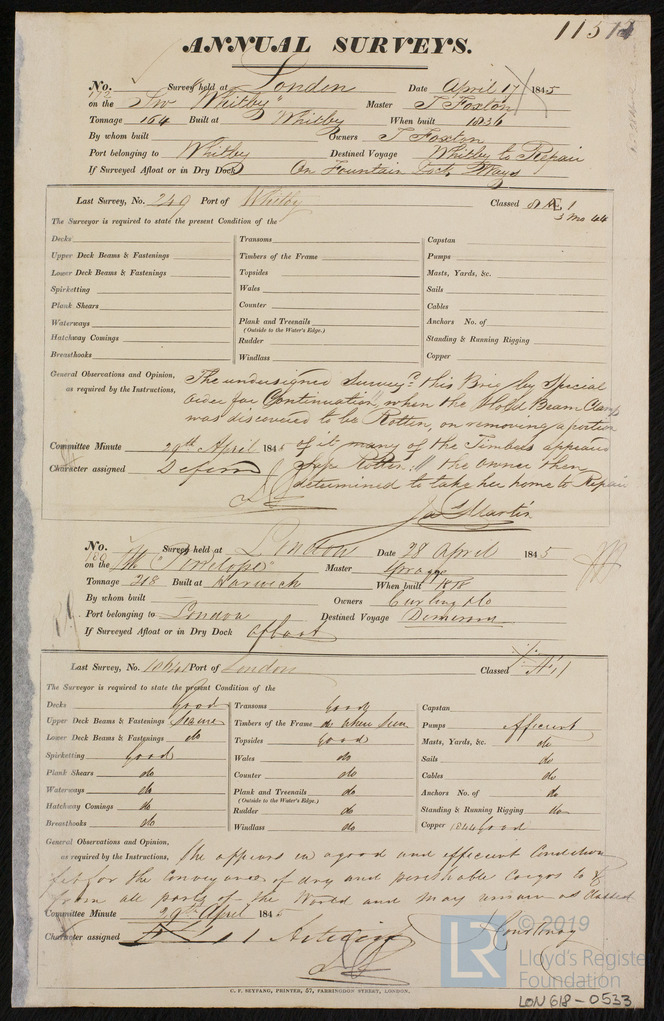 115
ANNUAL SURVEYS.
No. 172 Survey held at London Date April 17 1845
on the Sw "Whitby" Master T Foxton
Tonnage 164 Built at Whitby When built 1836
By whom built Owners T Foxton
Port belonging to Whitby Destined Voyage Whitby to Repair
If Surveyed Afloat or in Dry Dock On Fountain Ways
Last Survey, No. 249 Port of Whitby Classed Æ 1
3 Mo 44
The Surveyor is required to state the present Condition of the
Decks Transoms Capstan
Upper Deck Beams & Fastenings Timbers of the Frame Pumps
Lower Deck Beams & Fastenings Topsides Masts, Yards, &c.
Spirketting Wales Sails
Plank Shears Counter Cables
Waterways Plank and Treenails Anchors No. of
(Outside to the Water's Edge.)
Hatchway Comings Rudder Standing & Running Rigging
Breasthooks Windlass Copper
General Observations and Opinion, The undersigned Survey'd this Brig by Special
as required by the Instructions, Order for Continuation, when the Hold Beam Clamps
was discovered to be Rotten, on removing a portion
Committee Minute 29th April 1845 of it many of the Timbers appeared
Character assigned Deferred Rotten. the Owner then
determined to take her home to Repair
Jas Martin
No. Survey held at London Date 28 April 1845
on the "Penelope" Master Spragge
Tonnage 218 Built at Harwich When built
By whom built Owners Curling & Co
Port belonging to London Destined Voyage
If Surveyed Afloat or in Dry Dock afloat
Last Survey, No. Port of London Classed
The Surveyor is required to state the present Condition of the
Decks Good Transoms Good Capstan
Upper Deck Beams & Fastenings Secure Timbers of the Frame do when seen Pumps efficient
Lower Deck Beams & Fastenings do Topsides Good Masts, Yards, &c. do
Spirketting Good Wales do Sails do
Plank Shears do Counter do Cables do
Waterways do Plank and Treenails do Anchors No. of do
(Outside to the Water's Edge.)
Hatchway Comings do Rudder do Standing & Running Rigging do
Breasthooks do Windlass do Copper 1844 Good
General Observations and Opinion,
as required by the Instructions, She appears in a good and efficient Condition
fit for the conveyance of dry and perishable Cargos to &
from all parts of the World and may remain as Classed
Committee Minute 29th April 1845
Character assigned
Courtenay
© 2019
LR Lloyd's Register
Foundation
C. F. SEYFANG, PRINTER, 57, FARRINGDON STREET, LONDON.
LON618-0533